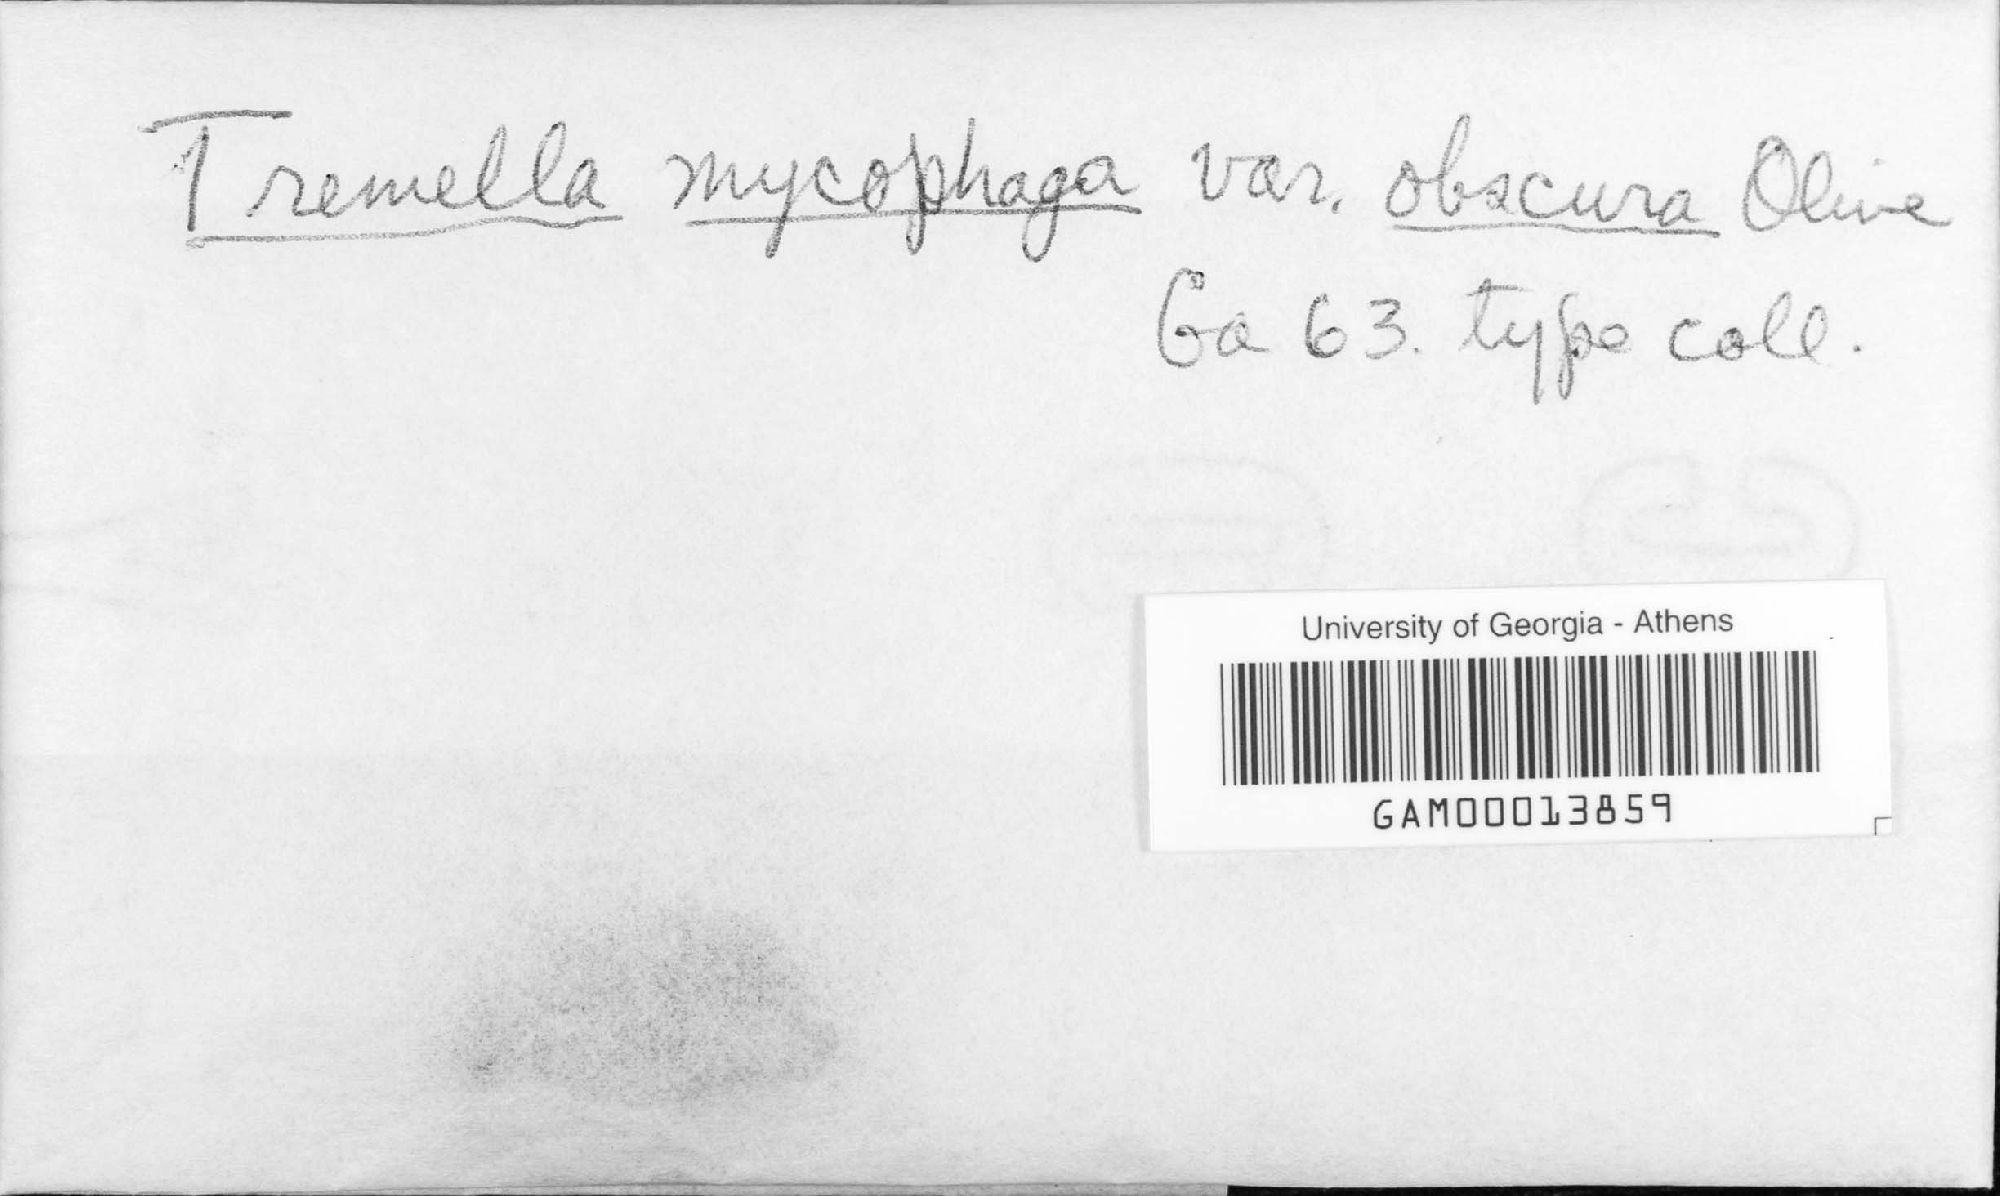 Tremella mycophaga var. obscura Olive
Ga 63. type coll.
University of Georgia - Athens
GAM00013859